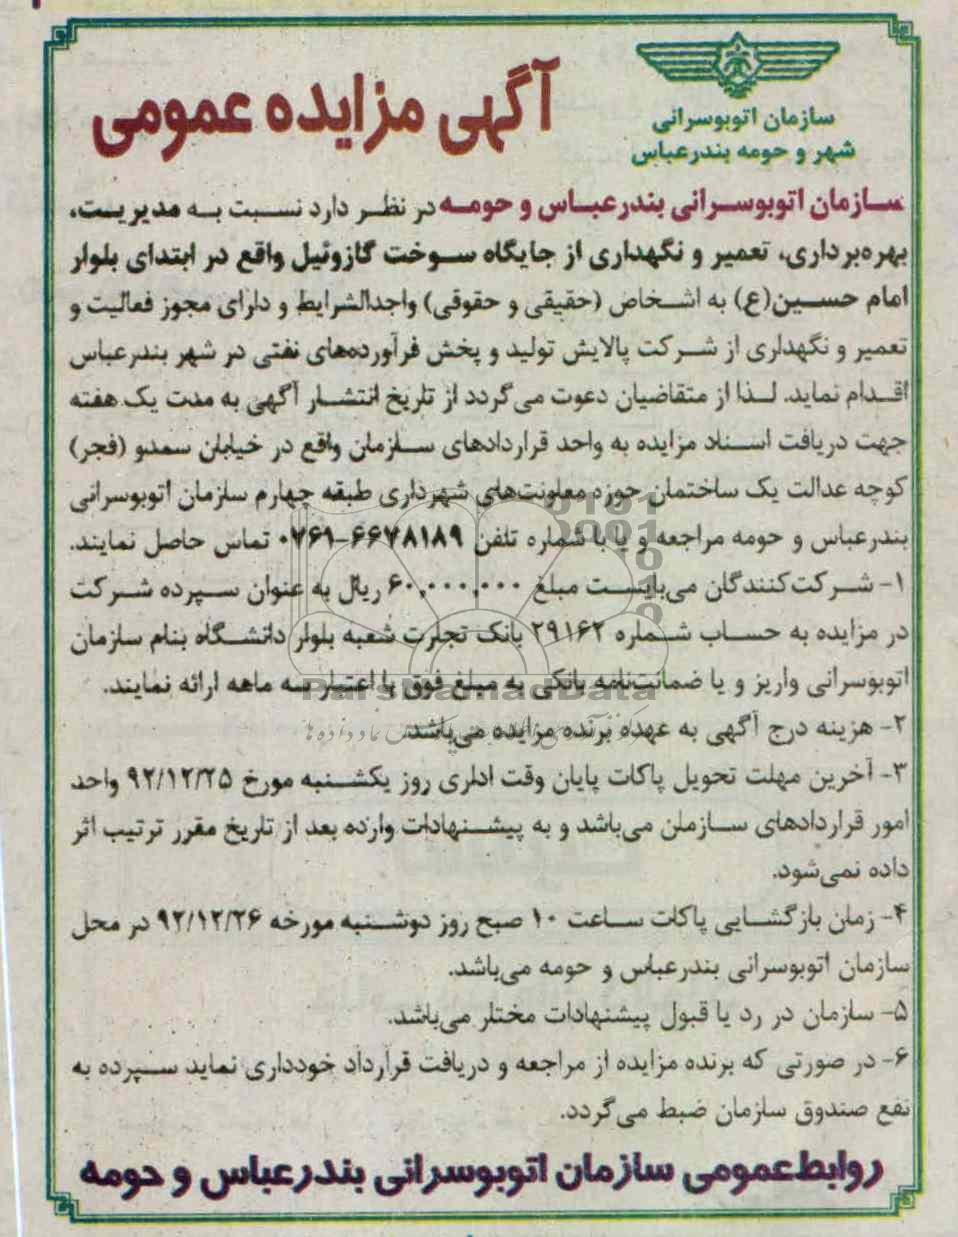 سازمان اتوبوسرانی
شهر و حومه بندرعباس
آگهی مزایده عمومی
سازمان اتوبوسرانی بندرعباس و حومه در نظر دارد نسبت به مدیریت،
بهره‌برداری، تعمیر و نگهداری از جایگاه سوخت گازوئیل واقع در ابتدای بلوار
امام حسین(ع) به اشخاص (حقیقی و حقوقی) واجدالشرایط و دارای مجوز فعالیت و
تعمیر و نگهداری از شرکت پالایش تولید و پخش فرآورده‌های نفتی در شهر بندرعباس
اقدام نماید. لذا از متقاضیان دعوت می‌گردد از تاریخ انتشار آگهی به مدت یک هفته
جهت دریافت اسناد مزایده به واحد قراردادهای سازمان واقع در خیابان سمدبو (فجر)
کوچه عدالت یک ساختمان حوزه معاونت‌های شهرداری طبقه چهارم سازمان اتوبوسرانی
بندرعباس و حومه مراجعه و یا با شماره تلفن ۶۶۷۸۱۸۹-۰۷۶۱ تماس حاصل نمایند.
۱- شرکت‌کنندگان می‌بایست مبلغ ۶۰,۰۰۰,۰۰۰ ریال به عنوان سپرده شرکت
در مزایده به حساب شماره ۲۹۱۶۲ بانک تجارت شعبه بلوار دانشگاه بنام سازمان
اتوبوسرانی واریز و یا ضمانت‌نامه بانکی به مبلغ فوق با اعتبار سه ماهه ارائه نمایند.
۲- هزینه درج آگهی به عهده برنده مزایده می‌باشد.
۳- آخرین مهلت تحویل پاکات پایان وقت اداری روز یکشنبه مورخ ۹۲/۱۲/۲۵ واحد
امور قراردادهای سازمان می‌باشد و به پیشنهادات وارده بعد از تاریخ مقرر ترتیب اثر
داده نمی‌شود.
۴- زمان بازگشایی پاکات ساعت ۱۰ صبح روز دوشنبه مورخه ۹۲/۱۲/۲۶ در محل
سازمان اتوبوسرانی بندرعباس و حومه می‌باشد.
۵- سازمان در رد یا قبول پیشنهادات مختار می‌باشد.
۶- در صورتی که برنده مزایده از مراجعه و دریافت قرارداد خودداری نماید سپرده به
نفع صندوق سازمان ضبط می‌گردد.
روابط‌عمومی سازمان اتوبوسرانی بندرعباس و حومه
ParsNamadData